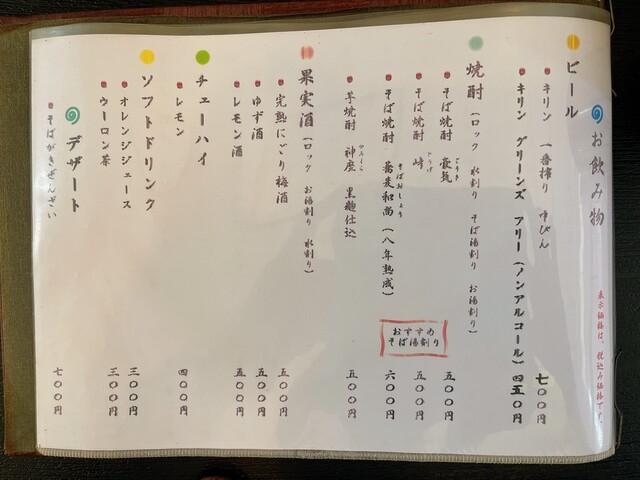 お飲み物
表示価格は、税込み価格です。
ビール
キリン 一番搾り 中びん 七〇〇円
キリン グリーンズ フリー(ノンアルコール) 四五〇円
焼酎(ロック 水割り そば湯割り お湯割り)
そば焼酎 豪気 ごうき 五〇〇円
そば焼酎 峠 とうげ 五〇〇円
そば焼酎 蕎麦和尚 そばおしょう (八年熟成) 六〇〇円
おすすめ
そば湯割り
芋焼酎 神座 かみくら 黒麹仕込 五〇〇円
果実酒(ロック お湯割り 水割り)
完熟にごり梅酒 五〇〇円
ゆず酒 五〇〇円
レモン酒 五〇〇円
チューハイ
レモン 四〇〇円
ソフトドリンク
オレンジジュース 三〇〇円
ウーロン茶 三〇〇円
デザート
そばがきぜんざい 七〇〇円